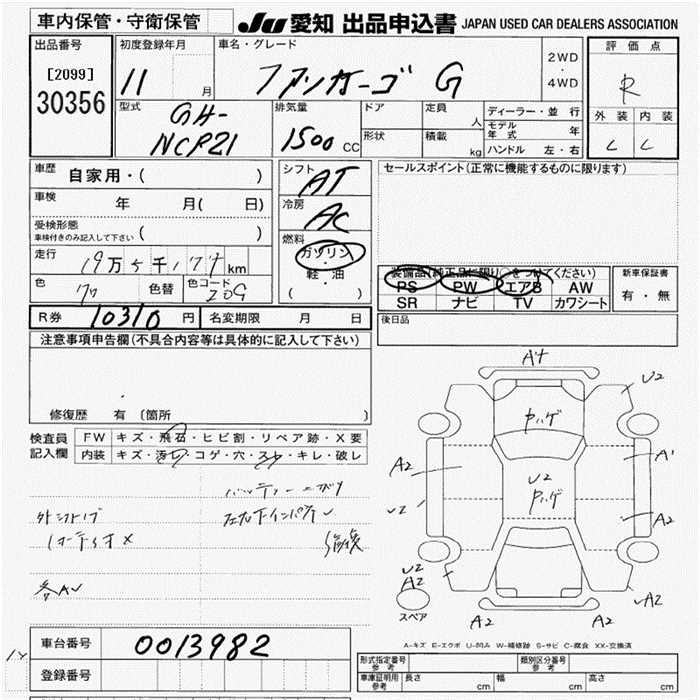 車内保管・守衛保管
JU 愛知 出品申込書 JAPAN USED CAR DEALERS ASSOCIATION
出品番号
[2099]
30356
初度登録年月
11 月
車名・グレード
ファンカーゴ G
2WD
・
4WD
評価点
R
外装 内装
C C
型式
GH-
NCP21
排気量
1500 CC
ドア
形状
定員
人
積載
kg
ディーラー・並行
モデル年式 年
ハンドル 左・右
車歴
自家用・( )
車検
年 月( 日)
受検形態
車検付きのみ記入して下さい ( )
走行
19万5千177 km
色
色替
色コード
シフト
AT
冷房
AC
燃料
ガソリン
・
軽・油
( )
セールスポイント(正常に機能するものに限ります)
装備品(純正品に限り○をつけてください)
PS PW エアB AW
SR ナビ TV カワシート
新車保証書
有・無
R券 10310 円
名変期限 月 日
後日品
注意事項申告欄(不具合内容等は具体的に記入して下さい)
修復歴 有 (箇所 )
検査員
記入欄
FW キズ・飛石・ヒビ割・リペア跡・X要
内装 キズ・汚れ・コゲ・穴・スレ・キレ・破レ
オーディオ×
各AU
A4
U2
A2
A1
U2
A2
U2
A2
U2
A2
A2
A2
A2
スペア
A-キズ E-エクボ U-凹み W-補修跡 S-サビ C-腐食 XX-交換済
車台番号
0013982
登録番号
形式指定番号
参考
類別区分番号
参考
車庫証明用
参考
長さ cm 幅 cm 高さ cm